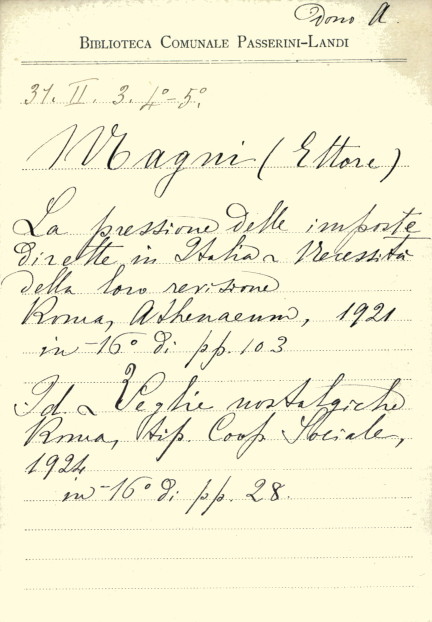 Dono A.
BIBLIOTECA COMUNALE PASSERINI-LANDI
31. II. 3. 4º-5º.
Magni (Ettore)
La pressione delle imposte
dirette in Italia ~ Necessità
della loro revisione
Roma, Athenaeum, 1921
in-16º di pp. 103
Id ~ Veglie nostalgiche
Roma, tip. Coop Sociale,
1924
in-16º di pp. 28.